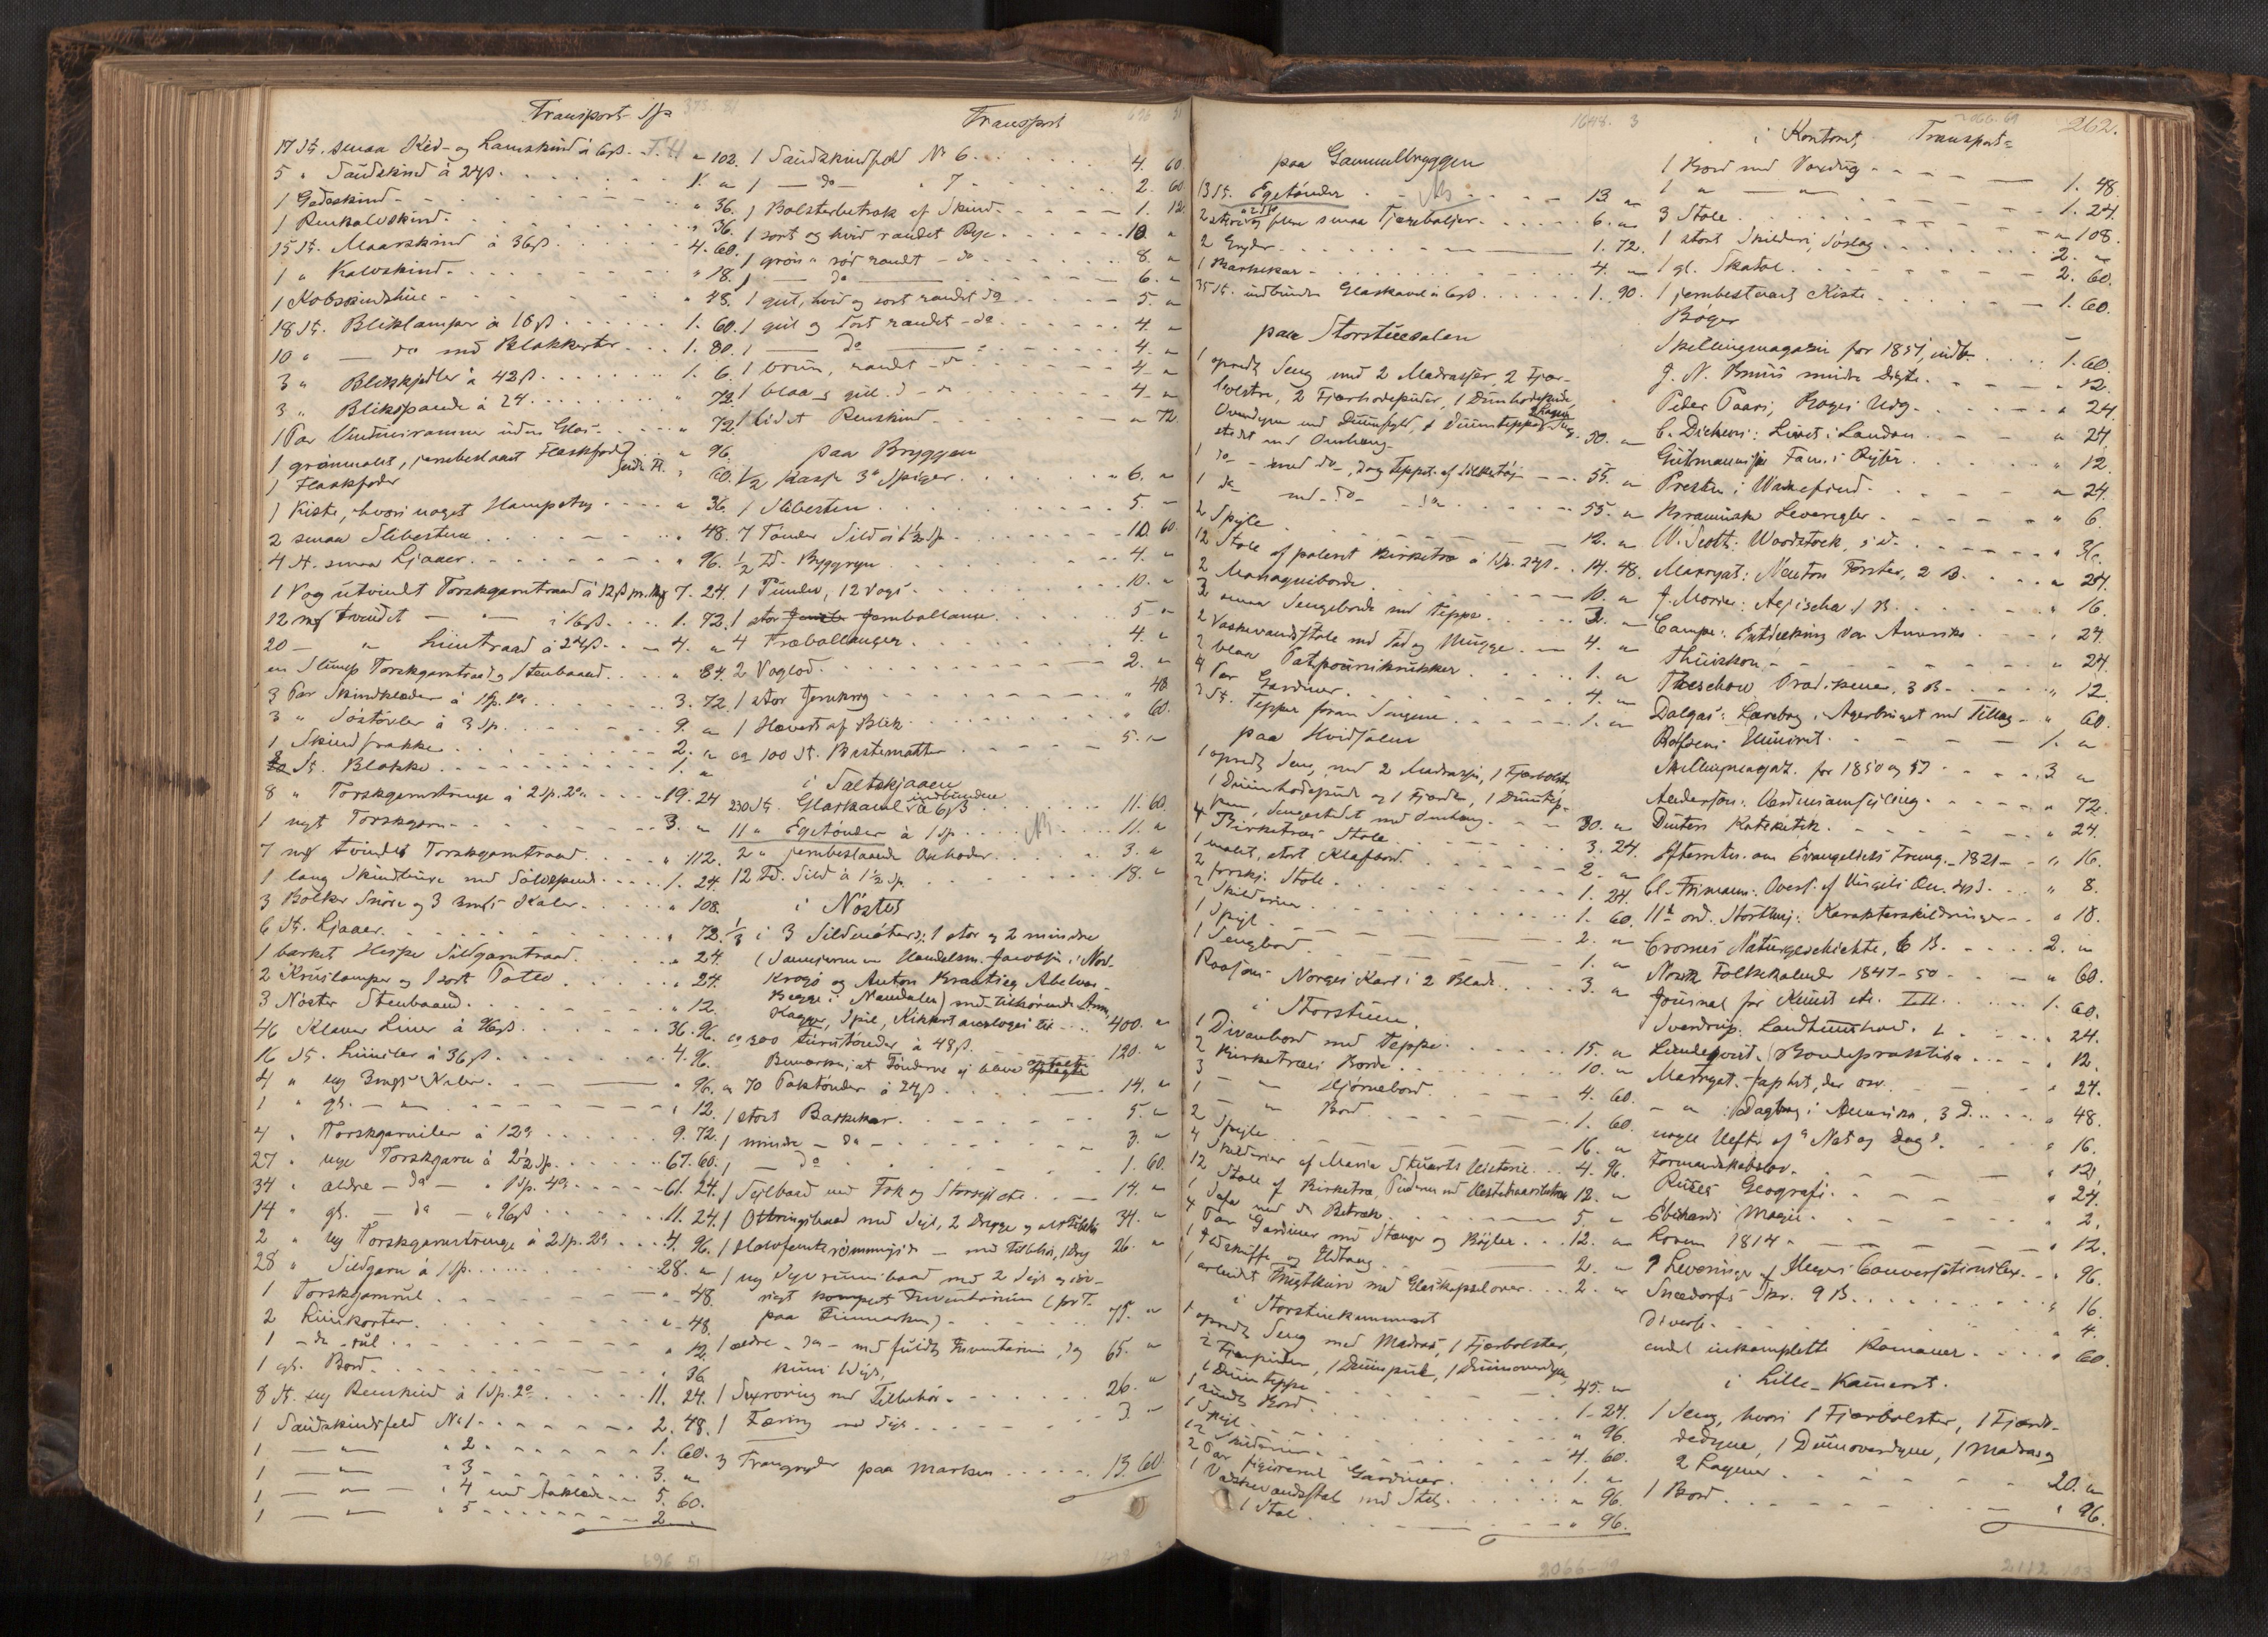 Transport
17 St. smaa Kid- og Lamskind à 6ß " 102.
5 " Saudskind à 24ß 1. "
1 Gedeskind " 36.
1 Renkalvskind " 36.
15 St. Maarskind à 36ß 4. 60.
1 " Kalvskind " 18.
1 Kobskindshue " 48.
18 St. Bliklamper à 10ß 1. 60.
10 " — do med Blakkerter 1. 80.
3 " Blikkjedler à 42ß 1. 6.
3 " Blikspande à 24 " 72.
1 Par Vinduesrammer uden Glas " 72.
1 grønmalet, jernbeslaaet Flaskefoder " 96.
1 Flaskfoder " 60.
1 Kiste, hvori noget Hampetoug " 36.
2 smaa Slibestene " 48.
4 St. smaa Ljaaer " 96.
1 Vog utvindt Torskgarntraad à 12ß pr. mk 7. 24.
12 mk tvindt — " — à 16ß 1. 72.
20 — " Liintraad à 24ß 4. "
en Slump Torskgarntraad og Steenbaand " 84.
3 Par Skindklæder à 1Sp. 3. 72.
3 " Søstøvler à 3 Sp. 9. "
1 Skindfrakke 2. "
St. Blokke 1. "
8 " Torskgarnstrenge à 2Sp. 2 19. 24
1 nyt Torskgarn 3. "
7 mk tvindet Torskgarntraad " 112.
1 lang Skindtrøie med Sølvspende 1. 24.
3 Bolker Snøre og 3 Kaler " 108.
6 St. Ljaaer " 72.
1 barket Hespe Sildgarntraad " 24.
2 Kruslamper og 1 sort Potte " 24.
3 Nøster Stenbaand " 12.
46 Klaver Liner à 96ß 36. 96.
16 St. Liiniler à 36ß 4. 96.
4 " ny Kaler " 96.
1 " gl. — " — " 12.
4 " Torskgarniler à 9. 72.
27 " nye Torskgarn à 2½ Sp. 67. 60.
34 " ældre — do — " 1Sp. 61. 24.
14 " gl. — do — " 96ß 11. 24.
2 " ny Torskgarnstrenge à 2Sp. 4. 96.
28 " Sildgarn à 1Sp. 28. "
1 Torskgarnrul " 48.
2 Liinkorter " 48.
1 — do rul " 12.
1 gl. Bord " 36
8 St. ny Renskind à 1Sp. 11. 24.
1 Saudskindsfeld No 1 2. 48.
1 — " — " 2 1. 60.
1 — " — " 3 3. "
1 — " — " 4 med Aaklæde 5. 60.
1 — " — " 5 2.
Transport
1 Saudskindfeld No 6 4. 60
1 — do — " 7 2. 60
1 Bolsterbetræk af Skind 1. 12.
1 sort og hvid randet Rye 10 "
1 grøn " rød randt — do 8. "
1 — do 6. "
1 gul, hvid og sort randet do 5. "
1 gul og sort randet — do 4. "
1 — do 4. "
1 brun, randt — do 4. "
1 blaa og gul do 4. "
1 lidet Renskind " 72.
paa Bryggen
½ Kasse 3" Spiger 6. "
1 Slibesten 5. —
7 Tønder Sild à 1½ Sp 10 60
½ Td. Byggryn 4. "
1 Punder, 12 Vogs 10. "
1 stor Jernballance 5. "
4 Træballancer 4. "
2 Voglod 2. "
1 stor Jernkrog " 48
1 Hævert af Blik " 60.
ca 100 St. Bastematter 5. "
i Saltskjaaen
230 St. Glaskavl indbundne à 6ß 11. 60.
11 " Egetønder à 1Sp. 11. "
2 " jernbeslaaede Oxhoder 3. "
12 Td. Sild à 1½ Sp. 18. "
i Nøstet
⅓ i 3 Sildnøter: 1 stor og 2 mindre
(Sameierne er Handelsm. Jacobsen i Nord-
Krogø og Anton Brandtzæg Abelvær-
Begge i Namdalen) med tilhørende
Kagger, Spil, 400. "
ca 300 Tørtønder à 48ß 120. "
Bemærkn, at Tønderne ej blive
70 Paktønder à 24ß 14. "
1 stort Barkekar 5. "
1 mindre — do — 3. "
1 — do 1. 60.
1 Seilbaad med Fok og Storseil etc. 14. "
1 Ottringsbaad med Seil, 2 Drægge og alt Tilbehør 34. "
1 Halvfemterømming do — med Tilbehør, 26. "
1 ny Fyrrumsbaad med 2 Seil og iøv-
rigt komplet Inventarium (
paa Finmarken) 75. "
1 ældre — do — med fuldt Inventarium, dog 65. "
kuns 1 Seil,
1 Sexroring med Tilbehør 26. "
1 Færing med Seil 3. "
3 Trangryder paa Marken 13. 60.
696 51
262.
1648. 3
paa Gammelbryggen
13 St. Egetønder 13. "
2 store og flere smaa Tjærebaljer 6. "
2 Gryder 1. 72.
1 Barkekar 4. "
35 St. indbundne Glaskavl à 6ß 1. 90.
paa Storstuesalen
1 opredt Seng med 2 Madrasser, 2 Fjær-
bolstre, 2 Fjærhodepuder, 1 Dunhodepude,
Overdyne med Duunfyld, 1 Duunteppe, Seng-
stedet med Omheng 50. "
1 do — med do —, dog Teppet af Silketøj 55. "
1 do med — do — do 55. "
2 Speile 12. "
12 Stole af poleret Birketræ à 1Sp. 24ß 14. 48.
2 Mahagniborde 10. "
2 smaa Sengeborde med Teppe 2. "
2 Vaskevandsstole med Fad og Mugge 4. "
2 blaa Potpourrikrukker 1. "
4 Par Gardiner 4. "
3 St. Tepper foran Sengene 1. "
paa Hvidsalen
1 opredt Seng, med 2 Madrasser, 1 Fjærbolster,
1 Duunhodepude og 1 Fjærdo, 1 Duuntep-
pe, Sengestedet med Omheng 30. "
4 Birketræs Stole 3. 24.
1 malet, stort Klafbord 2. "
2 forskj. Stole 1. 24.
2 Skilderier 1. 60.
1 Speil 2. "
1 Sengbord 1. "
Roosens Norges Kart i 2 Blade 3. "
i Storstuen.
1 Divanbord med Teppe 15. "
2 Birketræes Borde 10. "
3 — " — Hjørnebord 4. 60.
1 — " — Bord 1. 60.
2 Speile 16. "
4 Skilderier af Maria Stuarts Historie 4. 96.
12 Stole af Birketræ, Puderne med Hestehaarsbetræk 12. "
1 Sofa med do Betræk 5. "
4 Par Gardiner med Stænger og Bøiler 12. "
1 Ildskuffe og Ildtang 2. "
1 arbeidet Frugtkurv med Glaskapsel over 2. "
i Storstuekammeret
1 opredt Seng med Madras, 1 Fjærbolster,
2 Fjærpuder, 1 Duunpude, 1 Duunoverdyne,
1 Duunteppe 45. "
1 rundt Bord 1. 24.
1 Speil " 96.
12 Skilderier 4. 60.
2 Par figurerede Gardiner 1. "
1 Vaskevandsstol med Stel " 96.
1 Stol " 96.
2066—69
i Kontoret Transport
1 Bord med Voxdug 1. 48.
1 " — " — 1. 24.
3 Stole " 108.
1 stort Skilderi, Søslag 2. "
1 gl. Skatol 2. 60.
1 jernbeslaaet Kiste 1. 60.
Bøger
Skillingmagazin for 1851, indb. 1. 60.
J. N. Bruns mindre Digte " 12.
Peder Paars, Boges Udg. " 24.
C. Dickens: Livet i London " 24.
Gutmannske Fam. i Reiser " 12.
Præsten i Wakefield " 24.
Braminske Leveregler " 6.
W. Scott: Woodstock, " 36.
Marryat: Newton Forster, 2 B. " 24.
J. Morier: Aejischa 1 B. " 16.
Campe: Entdeckung von Amerika " 24.
Thuiskon " 24.
Treschow Prædikener, 3 B. " 12.
Dalgas: Lærebog i Agerbruget med Tillæg " 60.
Rolfsens Huusret 1. "
Skillingmagaz. for 1850 og 57 3. "
Andersson: Verdensomseiling " 72.
Dinters Kateketik " 24.
Efterretn. om Evangeliets Fremg. 1821 " 16.
Cl. Frimann: Overs. af Virgils " 8.
11te ord. Storthing: Karakterskildringer " 18.
Cromes Naturgeschichte, 6 B. 2. "
Norsk Folkekalender 1847–50 " 60.
Journal for Kunst etc. 1. 60.
Sverdrup: Landhuushold. 1 " 24.
Lindequist: Bondepraktika " 12.
Marryat. Japhet, der osv. " 24.
— " : Dagbog i Amerika, 3 D. " 48.
nogle Hefter af "Nat og Dag" " 16.
Formandskabslov " 12.
Ruses Geografi " 24.
Eberhards Magie " 2.
Loven 1814 " 12.
9 Leveringer af Meyers Conversationslex. " 96.
Sneedorfs Skr. 9 B. " 16.
Diverse " 4.
endel inkomplette Romaner " 60.
i Lille-Kamret.
1 Seng, hvori 1 Fjærbolster, 1 Fjærho-
dedyne, 1 Duunoverdyne, 1 Madras og
2 Lagener 20. "
1 Bord " 96.
2112 103